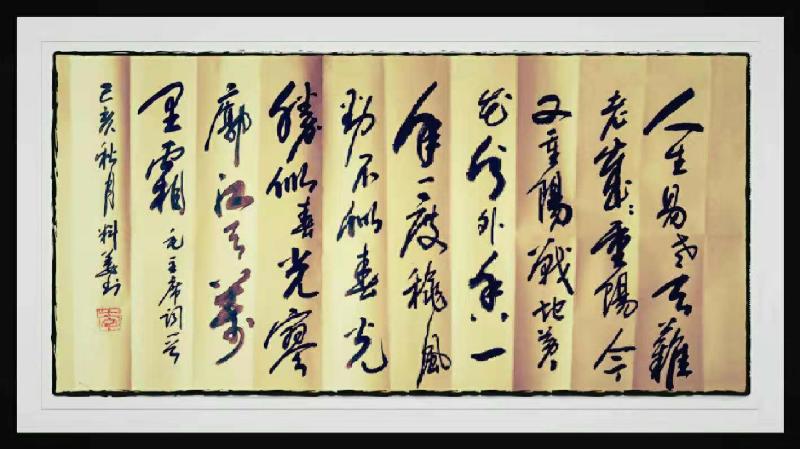 人生易老天難
老歲々重陽今
又重陽戰地黄
花分外香一
年一度穐風
勁不似春光
勝似春光寥
廓江天萬
里霜 毛主席詞一首
己亥秋月